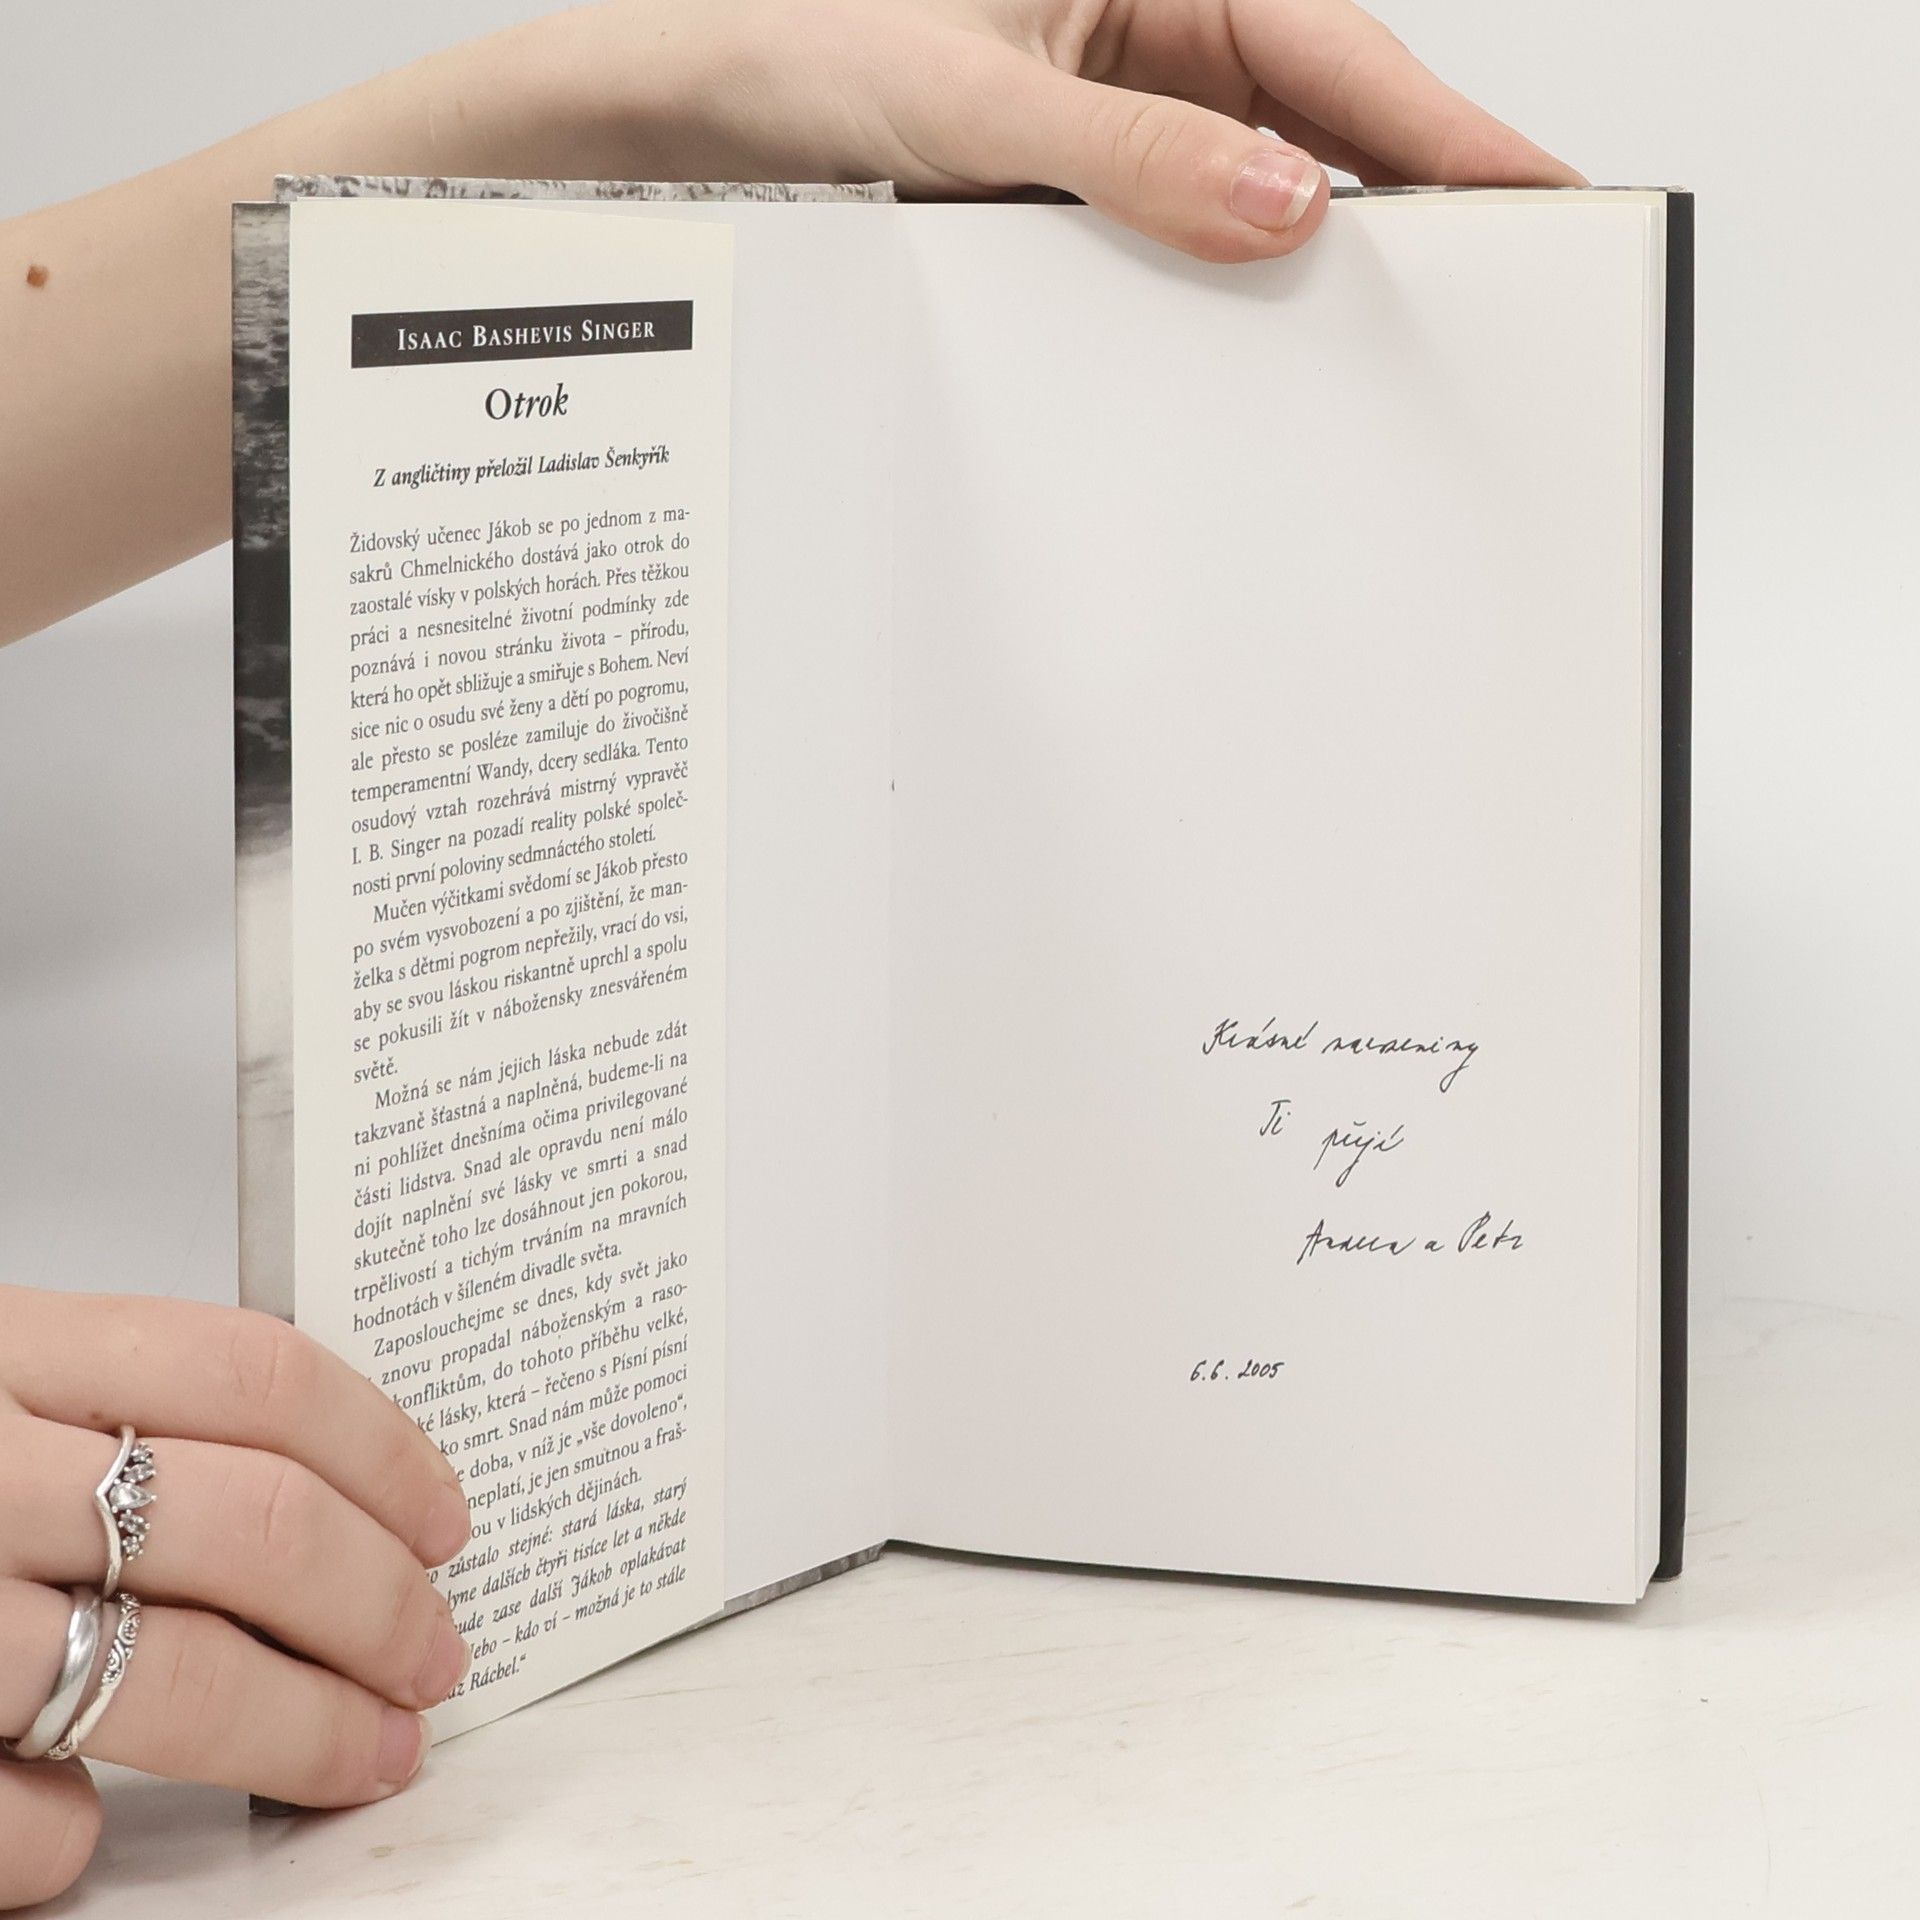 ISAAC BASHEVIS SINGER
Otrok
Z angličtiny přeložil Ladislav Šenkyřík
Židovský učenec Jákob se po jednom z ma-
sakrů Chmelnického dostává jako otrok do
zaostalé vísky v polských horách. Přes těžkou
práci a nesnesitelné životní podmínky zde
poznává i novou stránku života – přírodu,
která ho opět sbližuje a smiřuje s Bohem. Neví
sice nic o osudu své ženy a dětí po pogromu,
ale přesto se posléze zamiluje do živočišně
temperamentní Wandy, dcery sedláka. Tento
osudový vztah rozehrává mistrný vypravěč
I. B. Singer na pozadí reality polské společ-
nosti první poloviny sedmnáctého století.
Mučen výčitkami svědomí se Jákob přesto
po svém vysvobození a po zjištění, že man-
želka s dětmi pogrom nepřežily, vrací do vsi,
aby se svou láskou riskantně uprchl a spolu
se pokusili žít v nábožensky znesvářeném
světě.
Možná se nám jejich láska nebude zdát
takzvaně šťastná a naplněná, budeme-li na
ni pohlížet dnešníma očima privilegované
části lidstva. Snad ale opravdu není málo
dojít naplnění své lásky ve smrti a snad
skutečně toho lze dosáhnout jen pokorou,
trpělivostí a tichým trváním na mravních
hodnotách v šíleném divadle světa.
Zaposlouchejme se dnes, kdy svět jako
znovu propadal náboženským a raso-
konfliktům, do tohoto příběhu velké,
ké lásky, která – řečeno s Písní písní
ko smrt. Snad nám může pomoci
doba, v níž je „vše dovoleno“,
neplatí, je jen smutnou a fraš-
ou v lidských dějinách.
zůstalo stejné: stará láska, starý
lyne dalších čtyři tisíce let a někde
ude zase další Jákob oplakávat
Nebo – kdo ví – možná je to stále
Ráchel.“
Krásné narozeniny
Ti přejí
Andrea a Petr
6.6. 2005